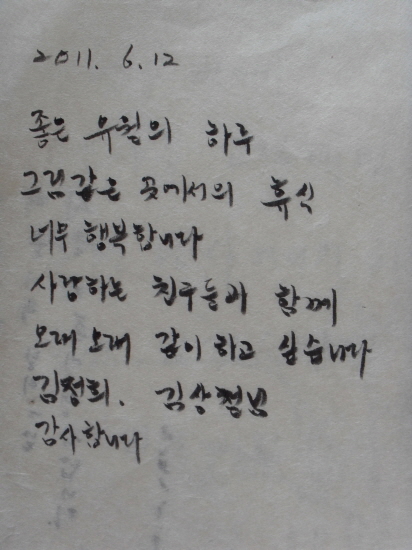 2011. 6.12
좋은 유월의 하루
그림같은 곳에서의 휴식
너무 행복합니다
사랑하는 친구들과 함께
오래오래 같이 하고 싶습니다
김정희. 김상점님
감사합니다